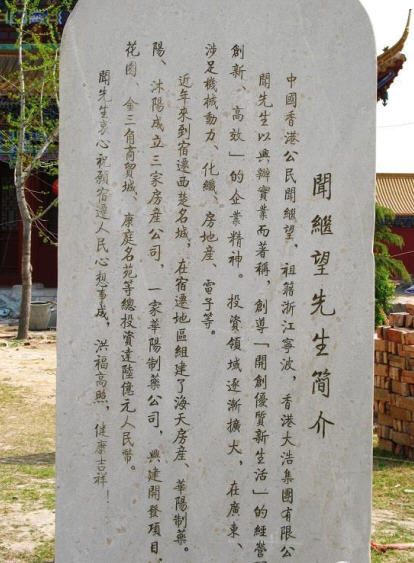 聞繼望先生简介
中國香港公民聞繼望，祖籍浙江寧波，香港大浩集團有限公
聞先生以興辦實業而著稱，創導「開創優質新生活」的經營
創新、高效」的企業精神。投資領域逐漸擴大，在廣東、
涉足機械動力、化纖、房地産、電子等。
近年來到宿遷西楚名城，在宿遷地區組建了海天房産、華陽制藥。
陽、沭陽成立三家房産公司，一家華陽制藥公司，興建開發項目
花園、金三角商貿城、康庭名苑等總投資達陸億元人民幣。
聞先生衷心祝願宿遷人民心想事成，洪福高照，健康吉祥！